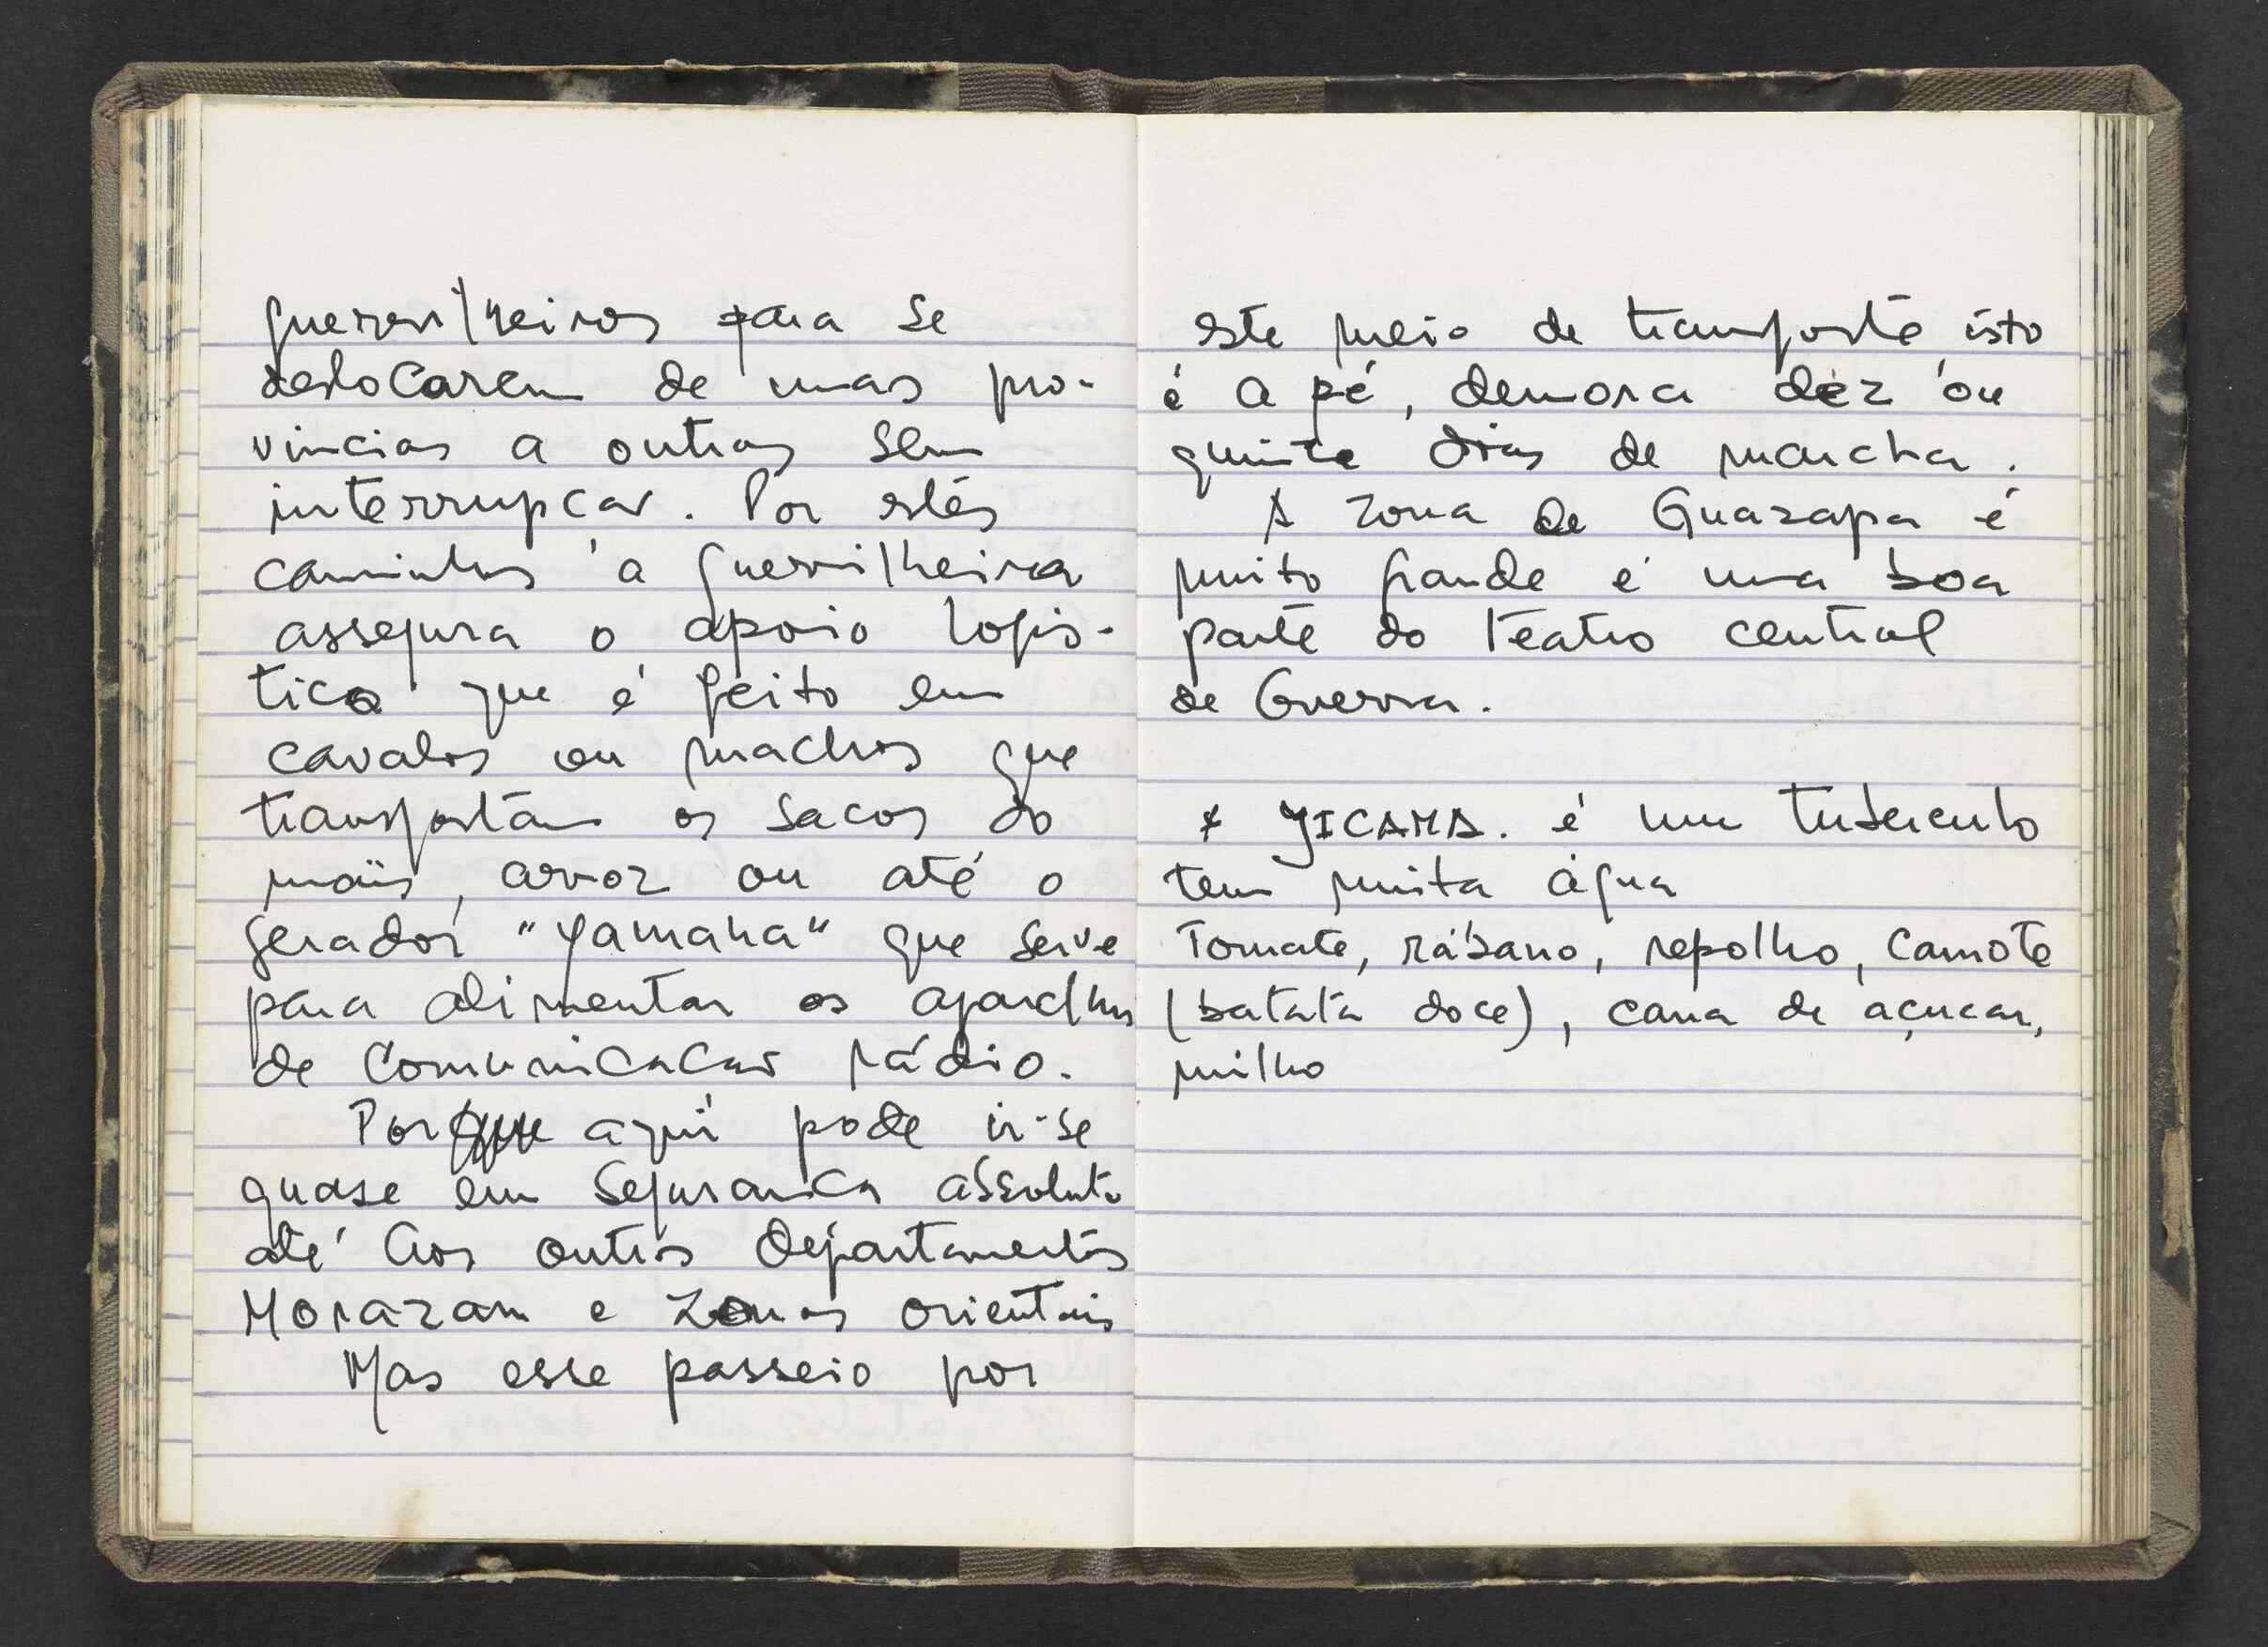 guerrilheiros para se
deslocarem de umas pro-
vincias a outras sem
interrupcao. Por estes
caminhos a guerrilheira
assegura o apoio logis-
tico que é feito em
cavalos ou machos que
transportam os sacos do
maïs, arroz ou até o
gerador "yamaha" que serve
para alimentar os aparelhos
de comunicacao rádio.
Por aqui pode ir-se
quase em seguranca absoluta
até aos outros departamentos
Morazan e zonas orientais
Mas esse passeio por
este meio de transporte isto
é a pé, demora dez ou
quinze dias de marcha.
A zona de Guazapa é
muito grande é uma boa
parte do Teatro central
de Guerra.
* JICAMA. é um tuberculo
tem muita água
Tomate, rábano, repolho, camote
(batata doce), cana de açucar,
milho